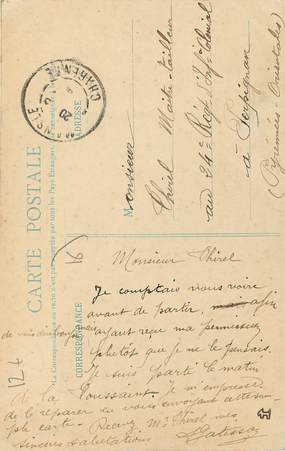 CARTE POSTALE
La Correspondance au recto n'est pas acceptée par tous les Pays Etrangers.
CORRESPONDANCE
ADRESSE
MANSLE
CHARENTE
20
Monsieur
Thirel Maître-tailleur
au 24e Régt d'Inf. Colonial
à Perpignan
(Pyrénées-Orientales)
16
12t
Monsieur Thirel
Je comptais vous voir
avant de partir, mais
ayant reçu ma permission
plutôt que je ne le pensais.
Je suis parti le matin
de la Toussaint. Je m'empresse
de le réparer en vous envoyant cette
ple carte. Recevez Mr Thirel mes
sincères salutations